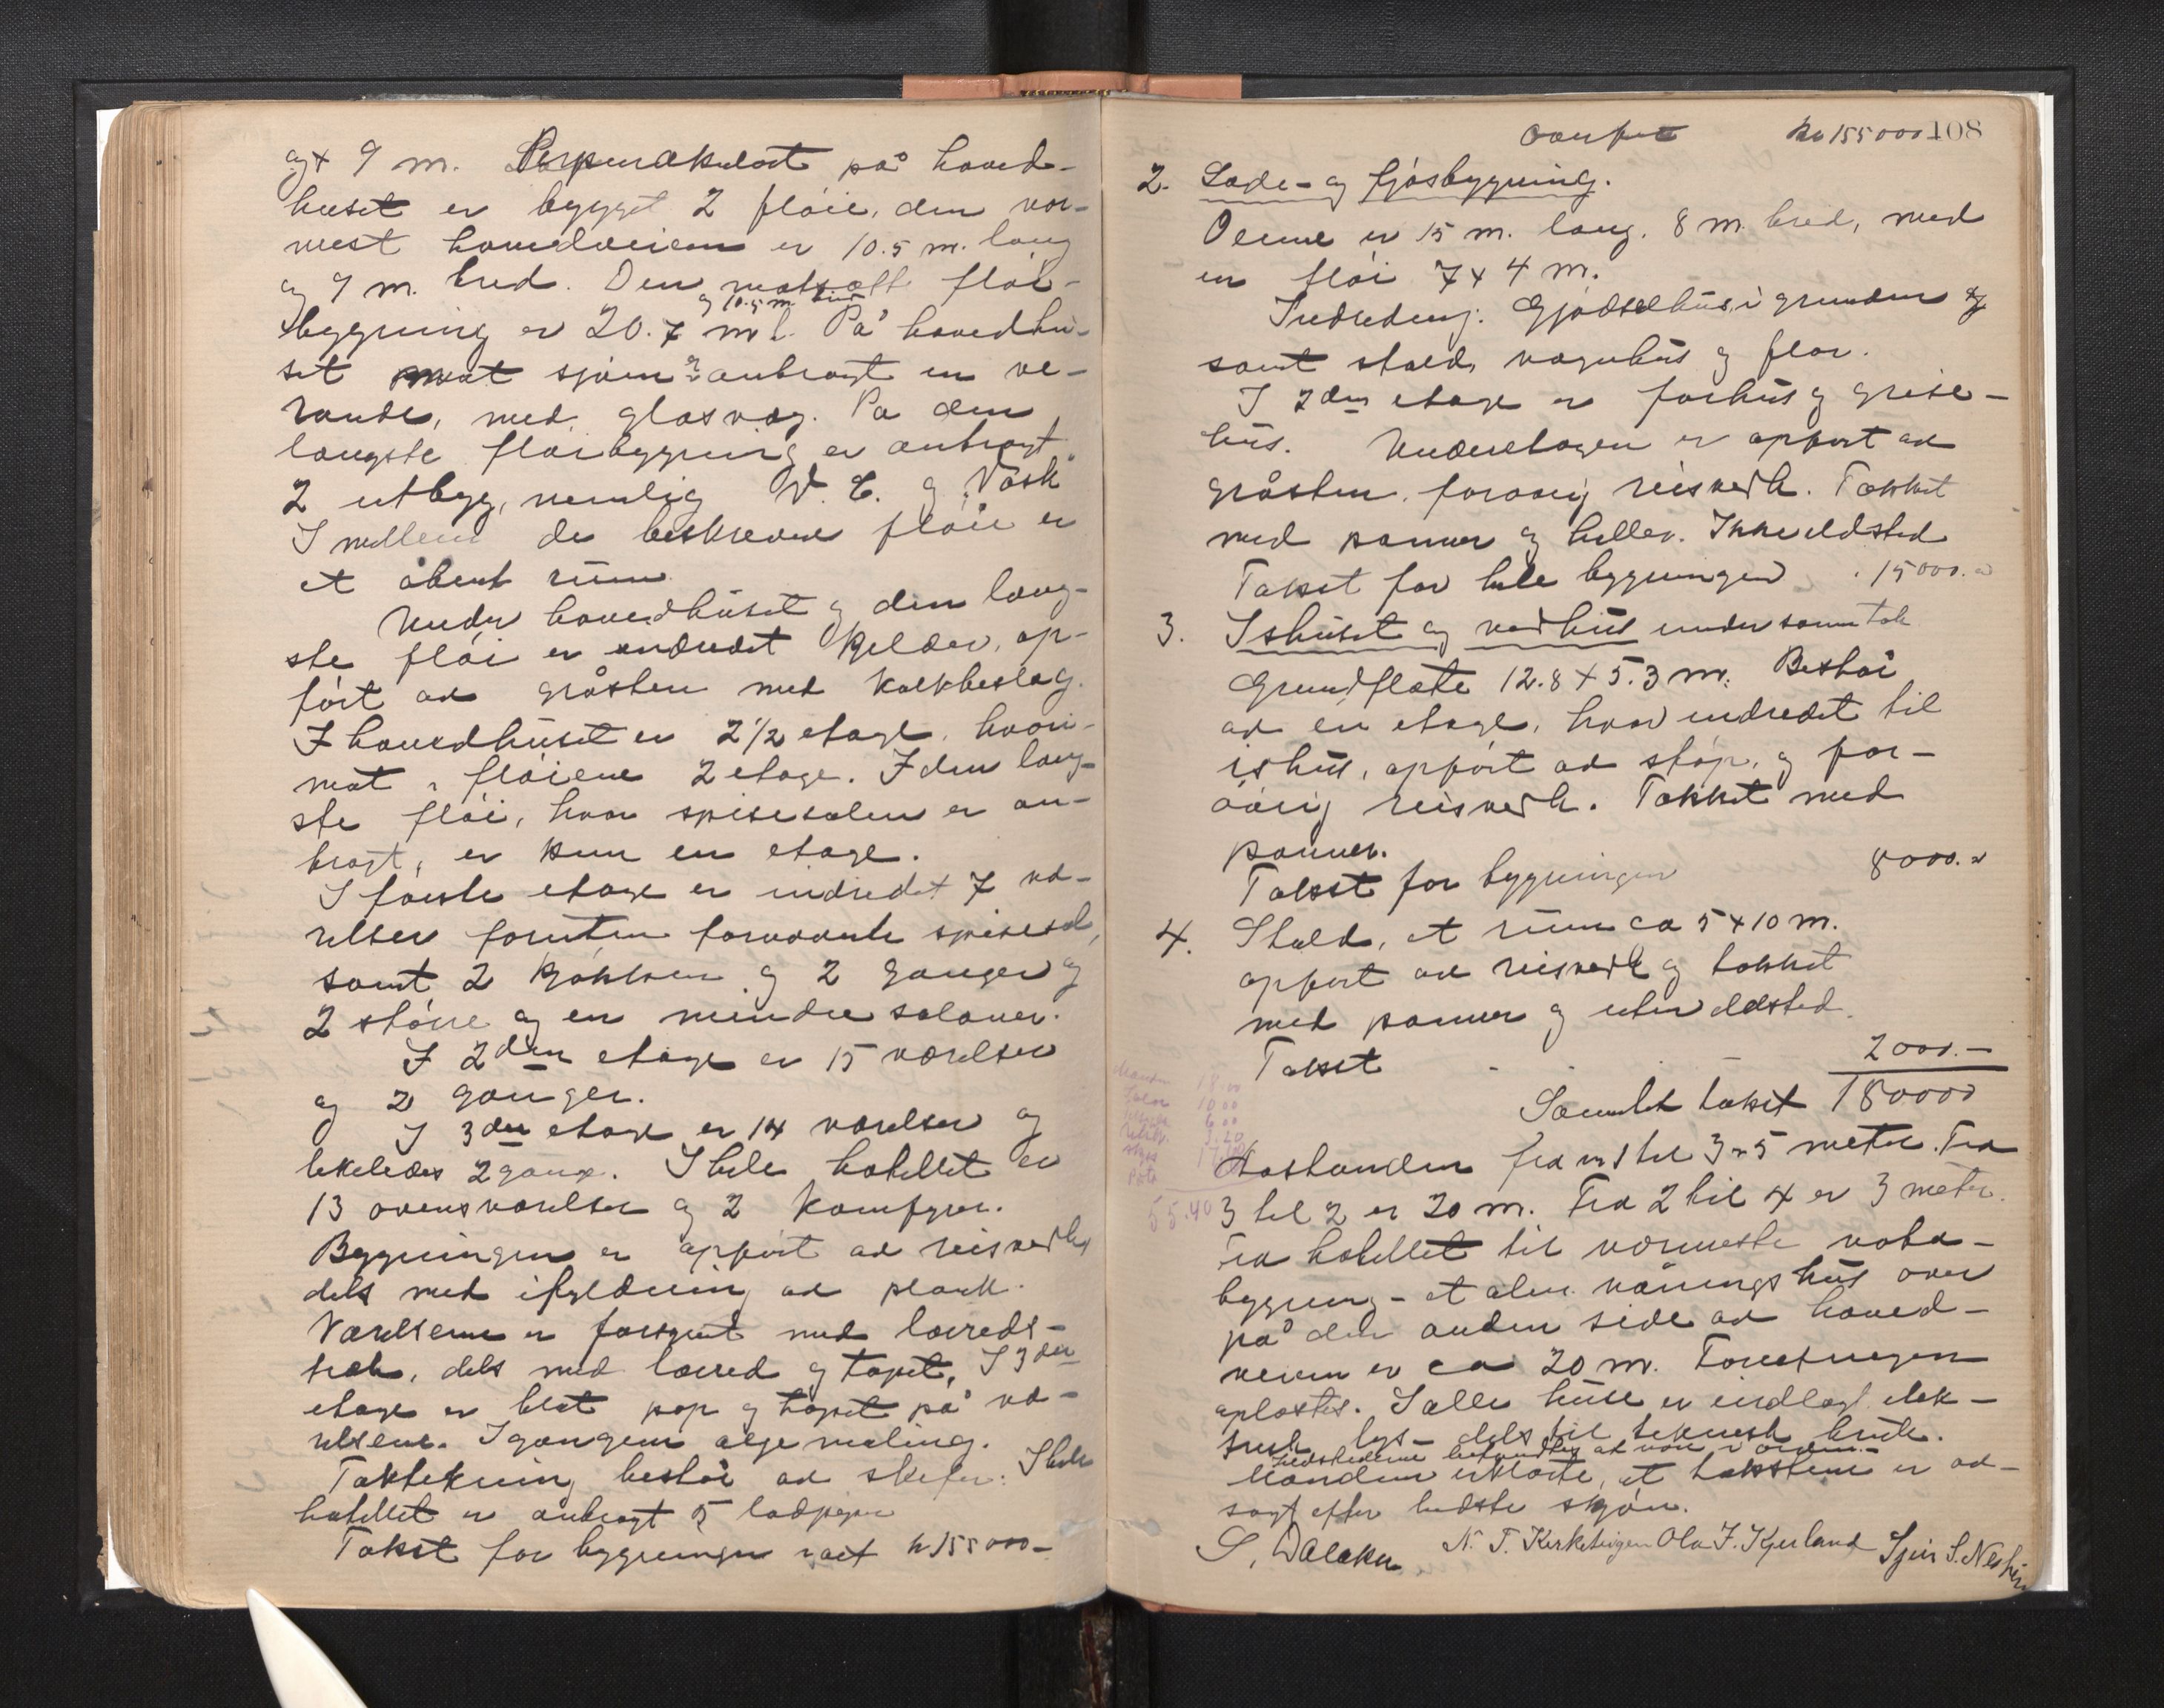 og + 9 m. Perpendikulært på hoved-
huset er bygget 2 fløie, den nor-
mest hovedveien er 10.5 m. lang
og 9 m. bred. Den motsatt fløi-
og 10.5 m.
bygning er 20.7 m l. På hovedhu-
set mot sjøen er anbragt en ve-
rande, med glasvæg. På den
længste fløibygning er anbragt
2 utbygg, nemlig W. C. og Vask
I mellem de beskrevne fløie er
et åbent rum
Under hovedhuset og den læng-
ste fløi er indredet kjelder, op-
ført av gråsten med kalkbeslag.
I hovedhuset er 2 1/2 etage, hvori-
mot i fløiene 2 etage. I den læng-
ste fløi, hvor spisesalen er an-
bragt, er kun en etage.
I første etage er indredet 7 væ-
relser foruten fornævnte spisesal,
samt 2 kjøkken og 2 ganger og
2 større og en mindre saloner.
I 2den etage er 15 værelser
og 2 ganger.
I 3den etage er 14 værelser og
likeledes 2 gange. I hele hotellet er
13 ovensværelser og 2 komfyrer.
Bygningen er opført av reisverk
dels med ifyldning av plank.
Værelsene er forsynt med lærreds-
træk, dels med lærred og tapet, I 3den
etage er blot pap og tapet på væ-
relsene. I gangene olje maling.
Taktekning består av skifer. I hele
hotellet er anbragt 5 ladpiper
Takst for bygningen kr 155000-
Overført kr 155000 108
2. Lade- og fjøsbygning.
Denne er 15 m. lang. 8 m. bred, med
en fløi 7 x 4 m.
Indredning: Gjødselhus i grunden og
samt stald, vognhus og flor.
I 2den etage er forhus og grise-
hus. Underetagen er opført av
gråsten, forøvrig reisverk. Tækket
med panner og heller. Ikke ildsted
Takst for hele bygningen 15000.-
3. Ishuset og vedhus under samme tak
Grundflate 12.8 + 5.3 m. Består
av én etage, hvor indredet til
ishus, opført av støp, og for-
øvrig reisverk. Tækket med
panner.
Takst for bygningen 8000.-
4. Stald, et rum ca 5 + 10 m.
opført av reisverk og tækket
med panner og uten ildsted.
Takst 2000.-
Samlet takst 180000
18.00
10.00
6.00
55.40
Avstanden fra nr 1 til 3 = 5 meter. Fra
3 til 2 er 20 m. Fra 2 til 4 er 3 meter.
Fra hotellet til nærmeste nabo-
bygning - et alm. våningshus over
på den anden side av hoved-
veien er ca 20 m. Forretningen
oplæstes. I alle huse er indlagt elek-
trisk lys- dels til teknisk bruk.
Ildstederne befandtes at være i orden.-
Mændene erklærte, at taksterne er av-
sagt efter bedste skjøn.
S. Dalaker N. T. Kirketeigen Ola J. Kjerland Sjur S. Neshei